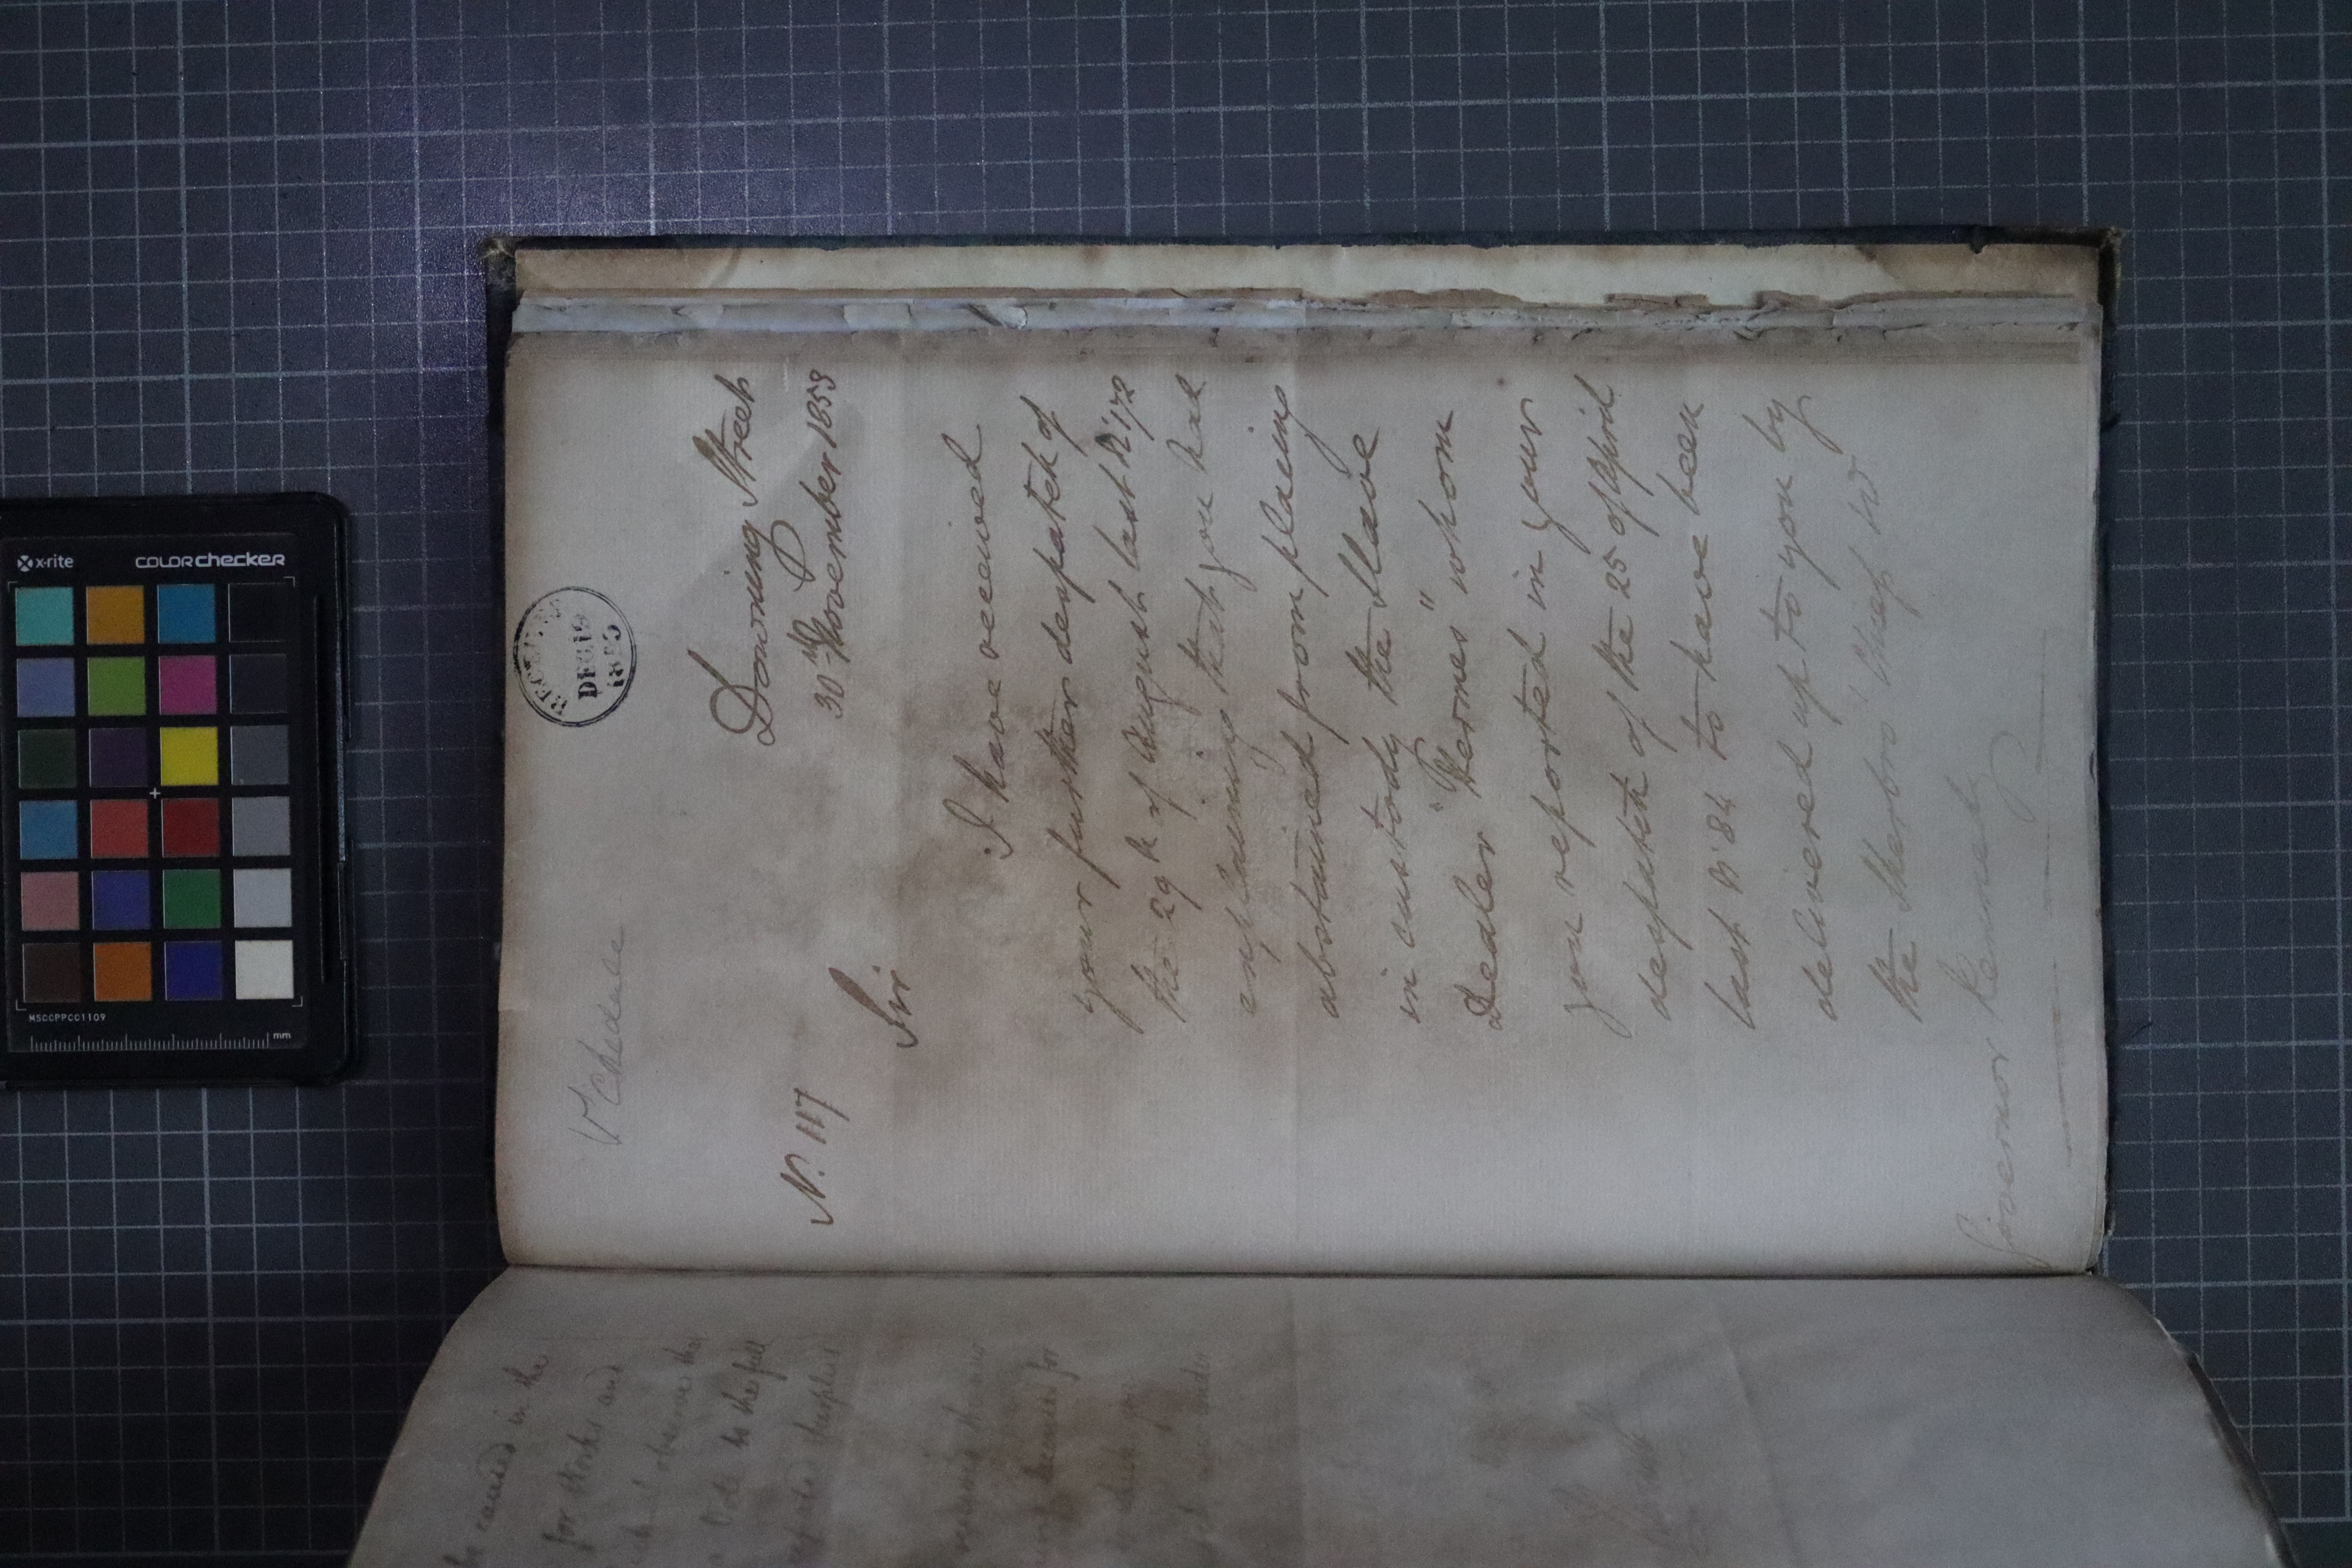 RECEIVED
DEC 19
1853
Downing Street
30th November 1853
N. 117
Sir
I have received
your further despatch of
the 29th of August last No 172
explaining that you had
abstained from placing
in custody the Slave
Dealer "Hermes" whom
you reported in your
despatch of the 25 of April
last No 84 to have been
delivered up to you by
the Sherbro Chiefs
Governor Kennedy
be caused in the
for Works and
I observe the
to the full
Supplies
for
under
x-rite
colorchecker
MSCCPPCC1109
mm